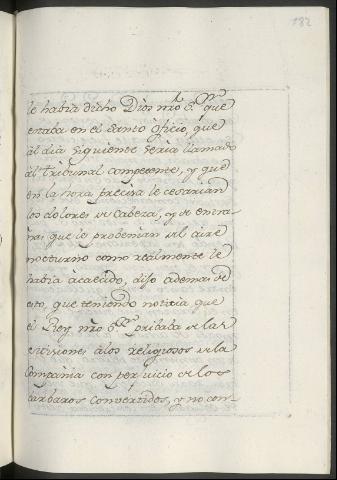 182
le habia dicho Dios nrô Sºʳ que
entraba en el Santo oficio, que
al dia siguiente seria llamado
al tribunal competente, y que
en la hora precisa le cesarian
los dolores de Cabeza, y de entra-
ñas que le probenian del aire
nocturno como realmente le
habia acaecido, dijo ademas de
esto, que teniendo noticia que
el Rey nrô Sºʳ pribaba de las
misiones álos religiosos de la
Compañia con perjuicio de los
bárbaros convertidos, y no con-